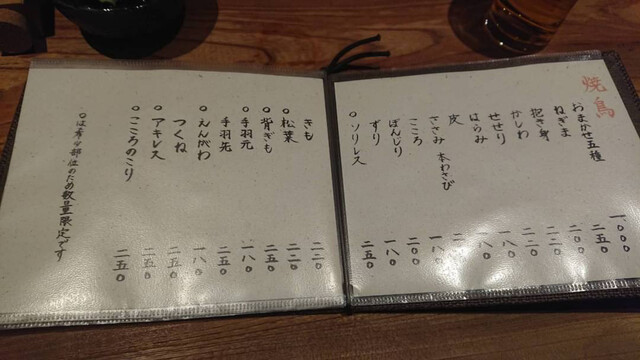 焼鳥
おまかせ五種 一〇〇〇
ねぎま 二五〇
抱き身 二〇〇
かしわ 二二〇
せせり 二二〇
はらみ 一八〇
皮 一八〇
ささみ 本わさび
こころ 一八〇
ぼんじり 二二〇
ずり 一八〇
○ソリレス 二五〇
きも 二二〇
○松葉 二二〇
○背ぎも 二五〇
○手羽元 一八〇
手羽先 二五〇
○えんがわ 一八〇
つくね 二五〇
○アキレス 二五〇
○こころのこり 二五〇
○は希少部位のため数量限定です